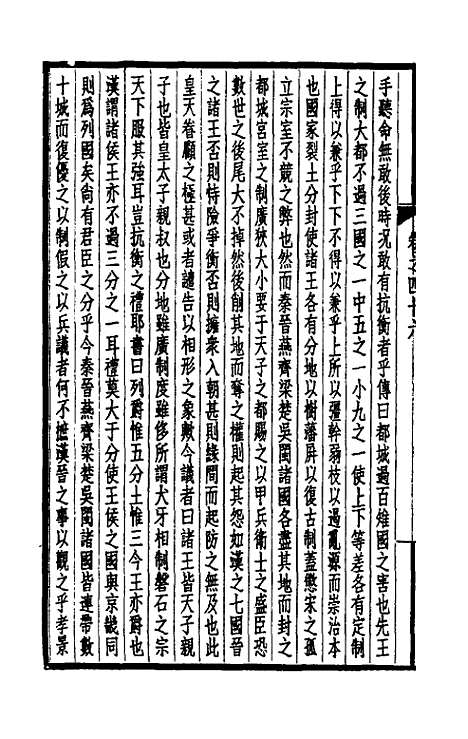 手聽命無敢後時况敢有抗衡者乎傳曰都城過百雉國之害也先王
之制大都不過三國之一中五之一小九之一使上下等差各有定制
上得以兼乎下下不得以兼乎上所以彊幹弱枝以遏亂源而崇治本
也國家裂土分封使諸王各有分地以樹藩屏以復古制蓋懲宋之孤
立宗室不競之弊也然而秦晉燕齊梁楚吳閩諸國各盡其地而封之
都城宮室之制廣狹大小亞于天子之都賜之以甲兵衛士之盛臣恐
數世之後尾大不掉然後削其地而奪之權則起其怨如漢之七國晉
之諸王否則恃險爭衡否則擁衆入朝甚則緣間而起防之無及也此
皇天眷顧之極甚或者譴告以相形之象歟今議者曰諸王皆天子親
子也皆皇太子親叔也分地雖廣制度雖侈所謂犬牙相制磐石之宗
天下服其強耳豈抗衡之禮耶書曰列爵惟五分土惟三今王亦爵也
漢謂諸侯王亦不過三分之一耳禮莫大于分使王侯之國與京畿同
則爲列國矣尚有君臣之分乎今秦晉燕齊梁楚吳閩諸國皆連帶數
十城而復優之以制假之以兵議者何不摭漢晉之事以觀之乎孝景